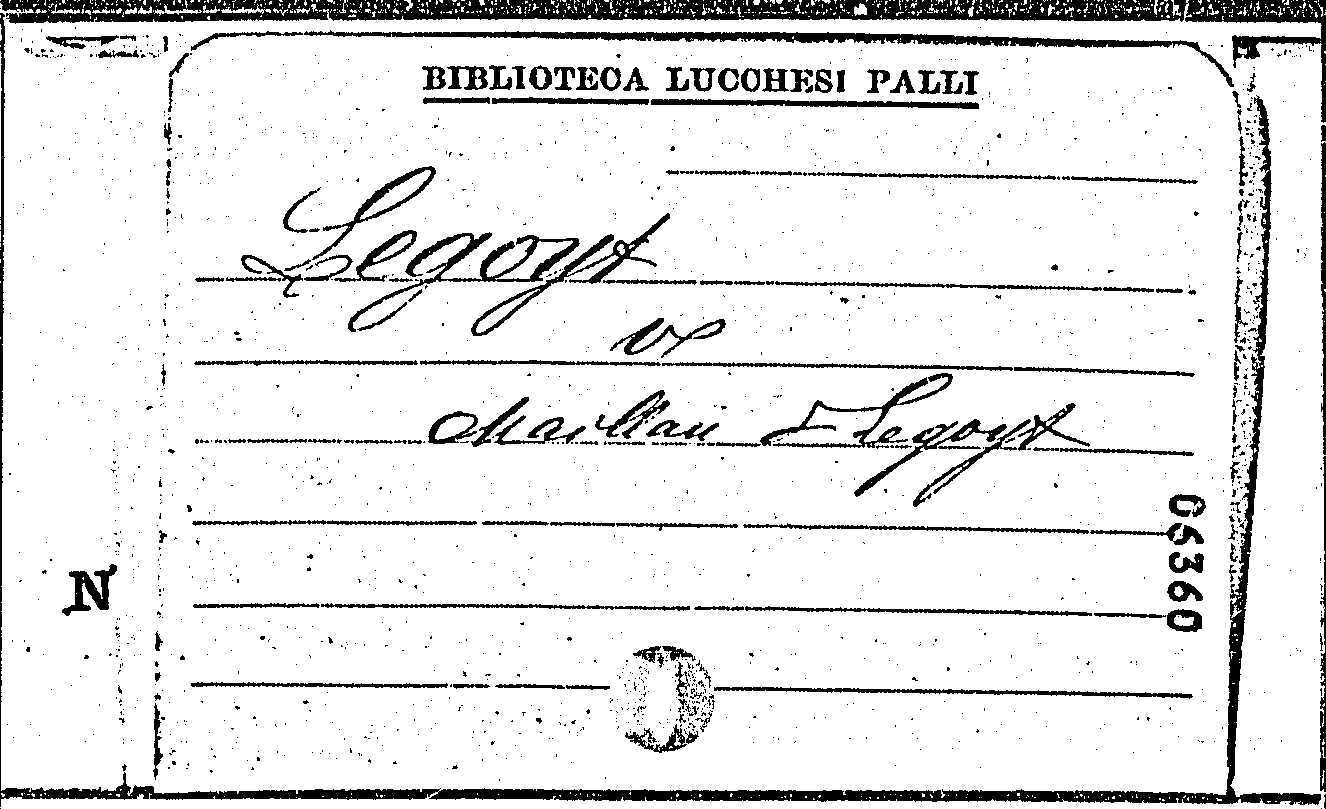 BIBLIOTECA LUCCHESI PALLI
Legoyt
v
Maillan & Legoyt
06360
N